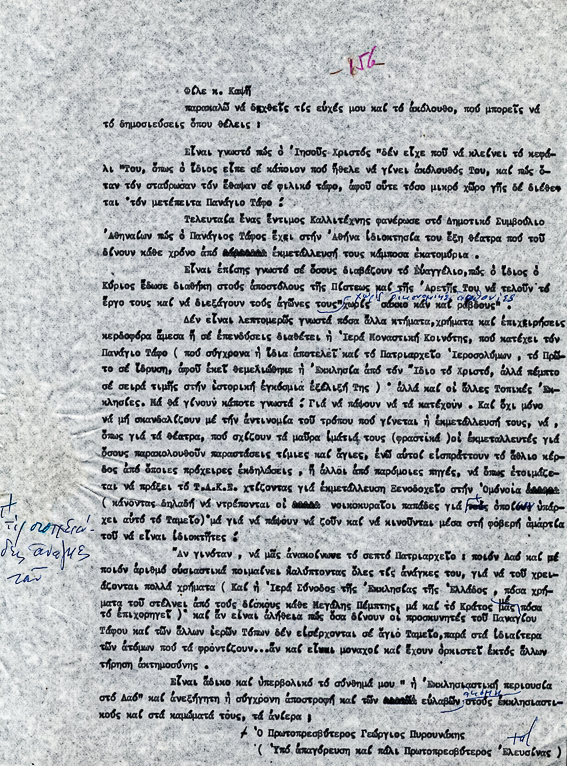 -156
Φίλε κ. Καψῆ
παρακαλῶ νά δεχθεῖς τίς εὐχές μου καί τό ἀκόλουθο, πού μπορεῖς νά
τό δημοσιεύσεις ὅπου θέλεις :
Εἶναι γνωστό πώς ὁ Ἰησοῦς Χριστός "δέν εἶχε ποῦ νά κλείνει τό κεφά-
λι "Του, ὅπως ὁ ἴδιος εἶπε σέ κάποιον πού ἤθελε νά γίνει ἀκόλουθός Του, καί πώς ὅ-
ταν τόν σταύρωσαν τόν ἔθαψαν σέ φιλικό τάφο, ἀφοῦ οὔτε τόσο μικρό χῶρο γῆς δέ διέθε-
ται 'τόν μετέπειτα Πανάγιο Τάφο !
Τελευταῖα ἕνας ἔντιμος Καλλιτέχνης φανέρωσε στό Δημοτικό Συμβούλιο
Ἀθηναίων πώς ὁ Πανάγιος Τάφος ἔχει στήν Ἀθήνα ἰδιοκτησία του ἕξη θέατρα πού τοῦ
δίνουν κάθε χρόνο ἀπό ἐκμετάλλευσή τους κάμποσα ἑκατομύρια .
Εἶναι ἐπίσης γνωστό σέ ὅσους διαβάζουν τό Εὐαγγέλιο, πώς ὁ ἴδιος ὁ
Κύριος ἔδωσε διαθήκη στούς ἀποστόλους τῆς Πίστεως καί τῆς Ἀρετῆς Του νά τελοῦν τό
ἔργο τους καί νά διεξάγουν τούς ἀγῶνες τους "χωρίς σάκκο κἄν καί ράβδους" .
Δέν εἶναι λεπτομερῶς γνωστά πόσα ἄλλα κτήματα, χρήματα καί ἐπιχειρήσεις
κερδοφόρα ἄμεσα ἤ σέ ἐπενδύσεις διαθέτει ἡ Ἱερά Μοναστική Κοινότης, πού κατέχει τόν
Πανάγιο Τάφο ( πού σύγχρονα ἡ ἴδια ἀποτελεῖ καί τό Πατριαρχεῖο Ἱεροσολύμων , τό Πρῶ-
το σέ ἵδρυση, ἀφοῦ ἐκεῖ θεμελιώθηκε ἡ Ἐκκλησία ἀπό τόν Ἴδιο τό Χριστό, ἀλλά πέμπτο
σέ σειρά τιμῆς στήν ἱστορική ἐγκόσμια ἐξέλιξή Της ) ἀλλά καί οἱ ἄλλες Τοπικές Ἐκ-
κλησίες. Νά θά γίνουν κάποτε γνωστά ! Γιά νά πάψουν νά τά κατέχουν . Καί ὄχι μόνο
νά μή σκανδαλίζουν μέ τήν ἀντινομία τοῦ τρόπου πού γίνεται ἡ ἐκμετάλλευσή τους, νά ,
ὅπως γιά τά θέατρα, πού σχίζουν τά μαῦρα ἱμάτιά τους (φραστικά )οἱ ἐκμεταλλευτές γιά
ὅσους παρακολουθοῦν παραστάσεις τίμιες καί ἅγιες, ἐνῶ αὐτοί εἰσπράττουν τό ἄθλιο κέρ-
δος ἀπό ὅποιες πρόχειρες ἐκδηλώσεις , ἤ ἄλλοι ἀπό παρόμοιες πηγές, νά ὅπως ἑτοιμάζε-
ται νά πράξει τό Τ.Α.Κ.Ε. χτίζοντας γιά ἐκμετάλλευση Ξενοδοχεῖο στήν Ὁμόνοια
( κάνοντας δηλαδή νά ντρέπονται οἱ νοικοκυραῖοι παπάδες γιά ὁποίων ὑπάρ-
χει αὐτό τό Ταμεῖο) μά γιά νά πάψουν νά ζοῦν καί νά κινοῦνται μέσα στή φοβερή ἁμαρτία
τοῦ νά εἶναι ἰδιοκτῆτες !
"Αν γινόταν , νά μᾶς ἀνακοίνωνε τό σεπτό Πατριαρχεῖο : ποιόν Λαό καί μέ
ποιόν ἀριθμό οὐσιαστικά ποιμαίνει καλύπτοντας ὅλες τίς ἀνάγκες του, γιά νά τοῦ χρει-
άζονται πολλά χρήματα ( Καί ἡ Ἱερά Σύνοδος τῆς Ἐκκλησίας τῆς Ἑλλάδος , πόσα χρή-
ματα τοῦ στέλνει ἀπό τούς δίσκους κάθε Μεγάλης Πέμπτης, μά καί τό Κράτος μας πόσα
τό ἐπιχορηγεῖ ) καί ἄν εἶναι ἀλήθεια πώς ὅσα δίνουν οἱ προσκυνητές τοῦ Παναγίου
Τάφου καί τῶν ἄλλων ἱερῶν Τόπων δέν εἰσέρχονται σέ ἅγιο Ταμεῖο, παρά στά ἰδιαίτερα
τῶν ἀτόμων πού τά φροντίζουν...ἄν καί εἶναι μοναχοί καί ἔχουν ὁρκιστεῖ ἐκτός ἄλλων
τήρηση ἀκτημοσύνης .
Εἶναι ἄδικο καί ὑπερβολικό τό σύνθημά μου " ἡ Ἐκκλησιαστική περιουσία
στό Λαό" καί ἀνεξήγητη ἡ σύγχρονη ἀποστροφή καί τῶν ἀκόμη εὐλαβῶν στούς ἐκκλησιαστι-
κούς καί στά καμώματά τους, τά ἀνίερα ;
Ὁ Πρωτοπρεσβύτερος Γεώργιος Πυρουνάκης
( Ὑπό ἀπαγόρευση καί πάλι Πρωτοπρεσβύτερος Ἐλευσίνας )